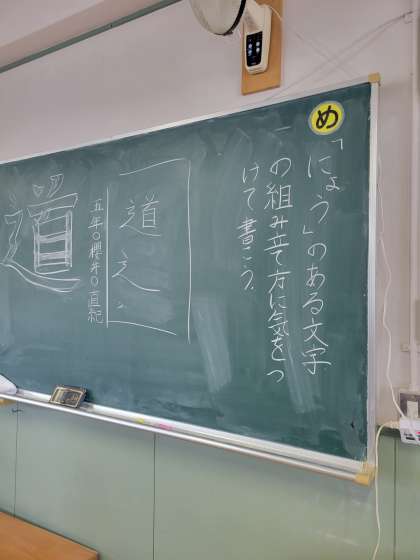 め
「にょう」のある文字
の組み立て方に気をつ
けて書こう。
道
五年○櫻井○直紀
道